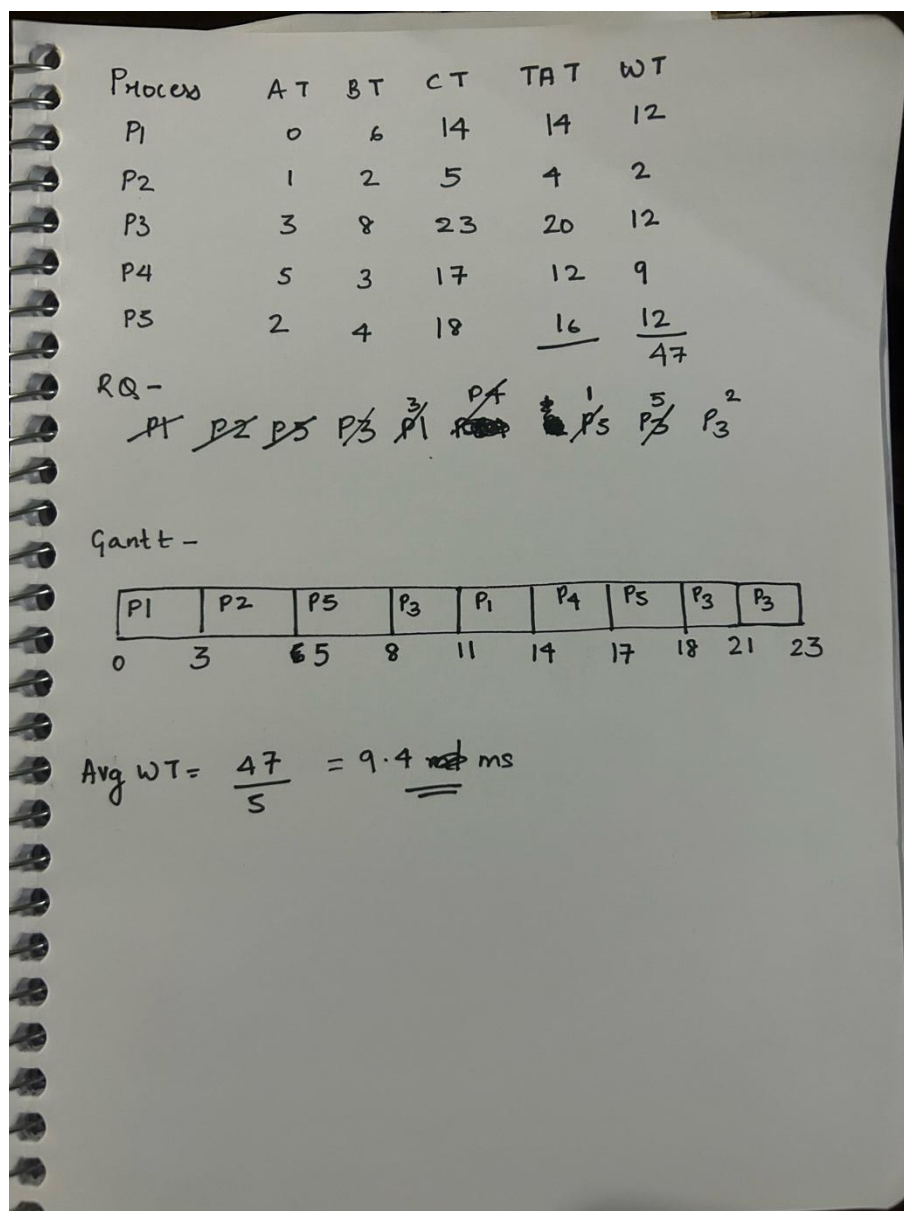 Process AT BT CT TAT WT
P1 0 6 14 14 12
P2 1 2 5 4 2
P3 3 8 23 20 12
P4 5 3 17 12 9
P5 2 4 18 16 12
47
RQ -
P1 P2 P5 P3 P1 3 P4 P5 1 P3 5 P3 2
Gantt -
P1 P2 P5 P3 P1 P4 P5 P3 P3
0 3 5 8 11 14 17 18 21 23
Avg WT = 47/5 = 9.4 ms